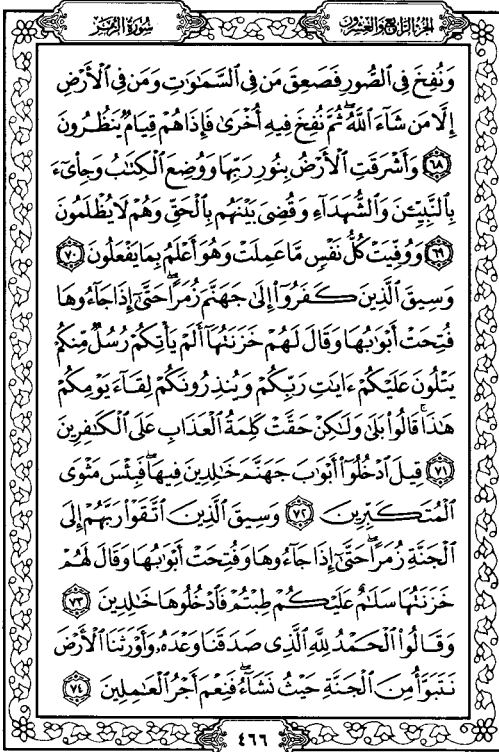 الجزء الرابع والعشرون
سورة الزمر
وَنُفِخَ فِي ٱلصُّورِ فَصَعِقَ مَن فِي ٱلسَّمَٰوَٰتِ وَمَن فِي ٱلْأَرْضِ
إِلَّا مَن شَآءَ ٱللَّهُ ۖ ثُمَّ نُفِخَ فِيهِ أُخْرَىٰ فَإِذَا هُمْ قِيَامٌ يَنظُرُونَ
٦٨ وَأَشْرَقَتِ ٱلْأَرْضُ بِنُورِ رَبِّهَا وَوُضِعَ ٱلْكِتَٰبُ وَجِا۟ىٓءَ
بِٱلنَّبِيِّـۧنَ وَٱلشُّهَدَآءِ وَقُضِيَ بَيْنَهُم بِٱلْحَقِّ وَهُمْ لَا يُظْلَمُونَ
٦٩ وَوُفِّيَتْ كُلُّ نَفْسٍ مَّا عَمِلَتْ وَهُوَ أَعْلَمُ بِمَا يَفْعَلُونَ ٧٠
وَسِيقَ ٱلَّذِينَ كَفَرُوٓا۟ إِلَىٰ جَهَنَّمَ زُمَرًا ۖ حَتَّىٰٓ إِذَا جَآءُوهَا
فُتِحَتْ أَبْوَٰبُهَا وَقَالَ لَهُمْ خَزَنَتُهَآ أَلَمْ يَأْتِكُمْ رُسُلٌ مِّنكُمْ
يَتْلُونَ عَلَيْكُمْ ءَايَٰتِ رَبِّكُمْ وَيُنذِرُونَكُمْ لِقَآءَ يَوْمِكُمْ
هَٰذَا ۚ قَالُوا۟ بَلَىٰ وَلَٰكِنْ حَقَّتْ كَلِمَةُ ٱلْعَذَابِ عَلَى ٱلْكَٰفِرِينَ
٧١ قِيلَ ٱدْخُلُوٓا۟ أَبْوَٰبَ جَهَنَّمَ خَٰلِدِينَ فِيهَا ۖ فَبِئْسَ مَثْوَى
ٱلْمُتَكَبِّرِينَ ٧٢ وَسِيقَ ٱلَّذِينَ ٱتَّقَوْا۟ رَبَّهُمْ إِلَى
ٱلْجَنَّةِ زُمَرًا ۖ حَتَّىٰٓ إِذَا جَآءُوهَا وَفُتِحَتْ أَبْوَٰبُهَا وَقَالَ لَهُمْ
خَزَنَتُهَا سَلَٰمٌ عَلَيْكُمْ طِبْتُمْ فَٱدْخُلُوهَا خَٰلِدِينَ ٧٣
وَقَالُوا۟ ٱلْحَمْدُ لِلَّهِ ٱلَّذِي صَدَقَنَا وَعْدَهُۥ وَأَوْرَثَنَا ٱلْأَرْضَ
نَتَبَوَّأُ مِنَ ٱلْجَنَّةِ حَيْثُ نَشَآءُ ۖ فَنِعْمَ أَجْرُ ٱلْعَٰمِلِينَ ٧٤
٤٦٦